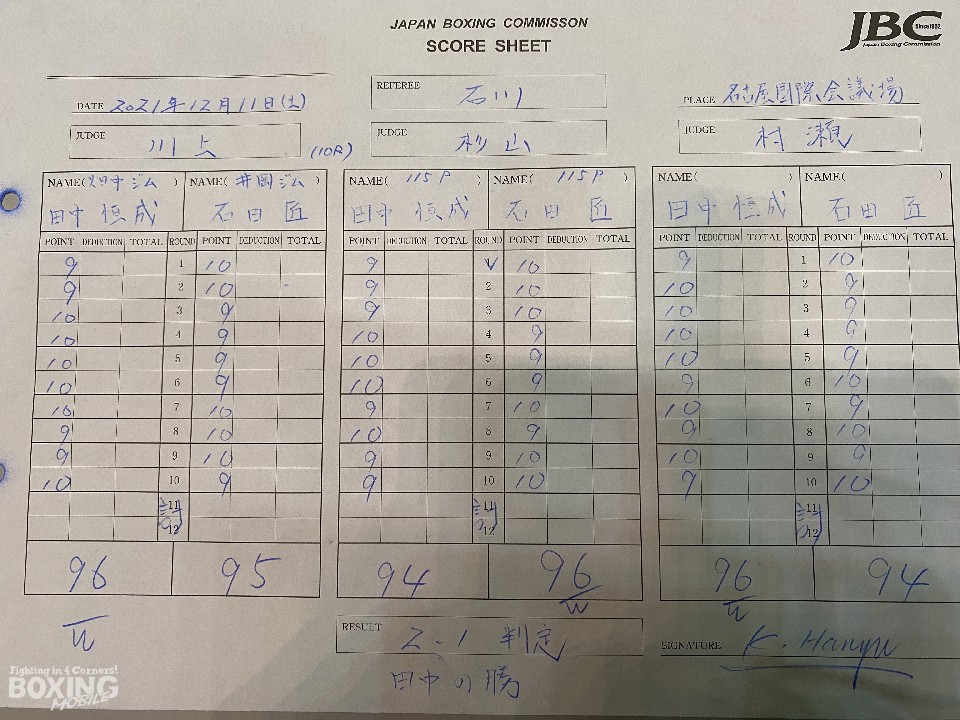 JAPAN BOXING COMMISSON
SCORE SHEET
JBC Since1952
Japan Boxing Commission
DATE 2021年12月11日(土)
REFEREE 石川
PLACE 名古屋国際会議場
JUDGE 川上
(10R)
JUDGE 杉山
JUDGE 村瀬
NAME(畑中ジム) NAME(井岡ジム) NAME(115P) NAME(115P) NAME( ) NAME( )
田中恒成 石田匠 田中恒成 石田匠 田中恒成 石田匠
POINT DEDUCTION TOTAL ROUND POINT DEDUCTION TOTAL POINT DEDUCTION TOTAL ROUND POINT DEDUCTION TOTAL POINT DEDUCTION TOTAL ROUND POINT DEDUCTION TOTAL
9 1 10 9 10 9 1 10
9 2 10 9 2 10 10 2 9
10 3 9 9 3 10 10 3 9
10 4 9 10 4 9 10 4 9
10 5 9 10 5 9 10 5 9
10 6 9 10 6 9 9 6 10
10 7 10 9 7 10 10 7 9
9 8 10 10 8 9 9 8 10
9 9 10 9 9 10 10 9 9
10 10 9 9 10 10 9 10 10
11 11 11
12 12 12
96 95 94 96 96 94
W W W
RESULT 2-1 判定
田中の勝
SIGNATURE K. Hanyu
Fighting in 4 Corners!
BOXING
MOBILE